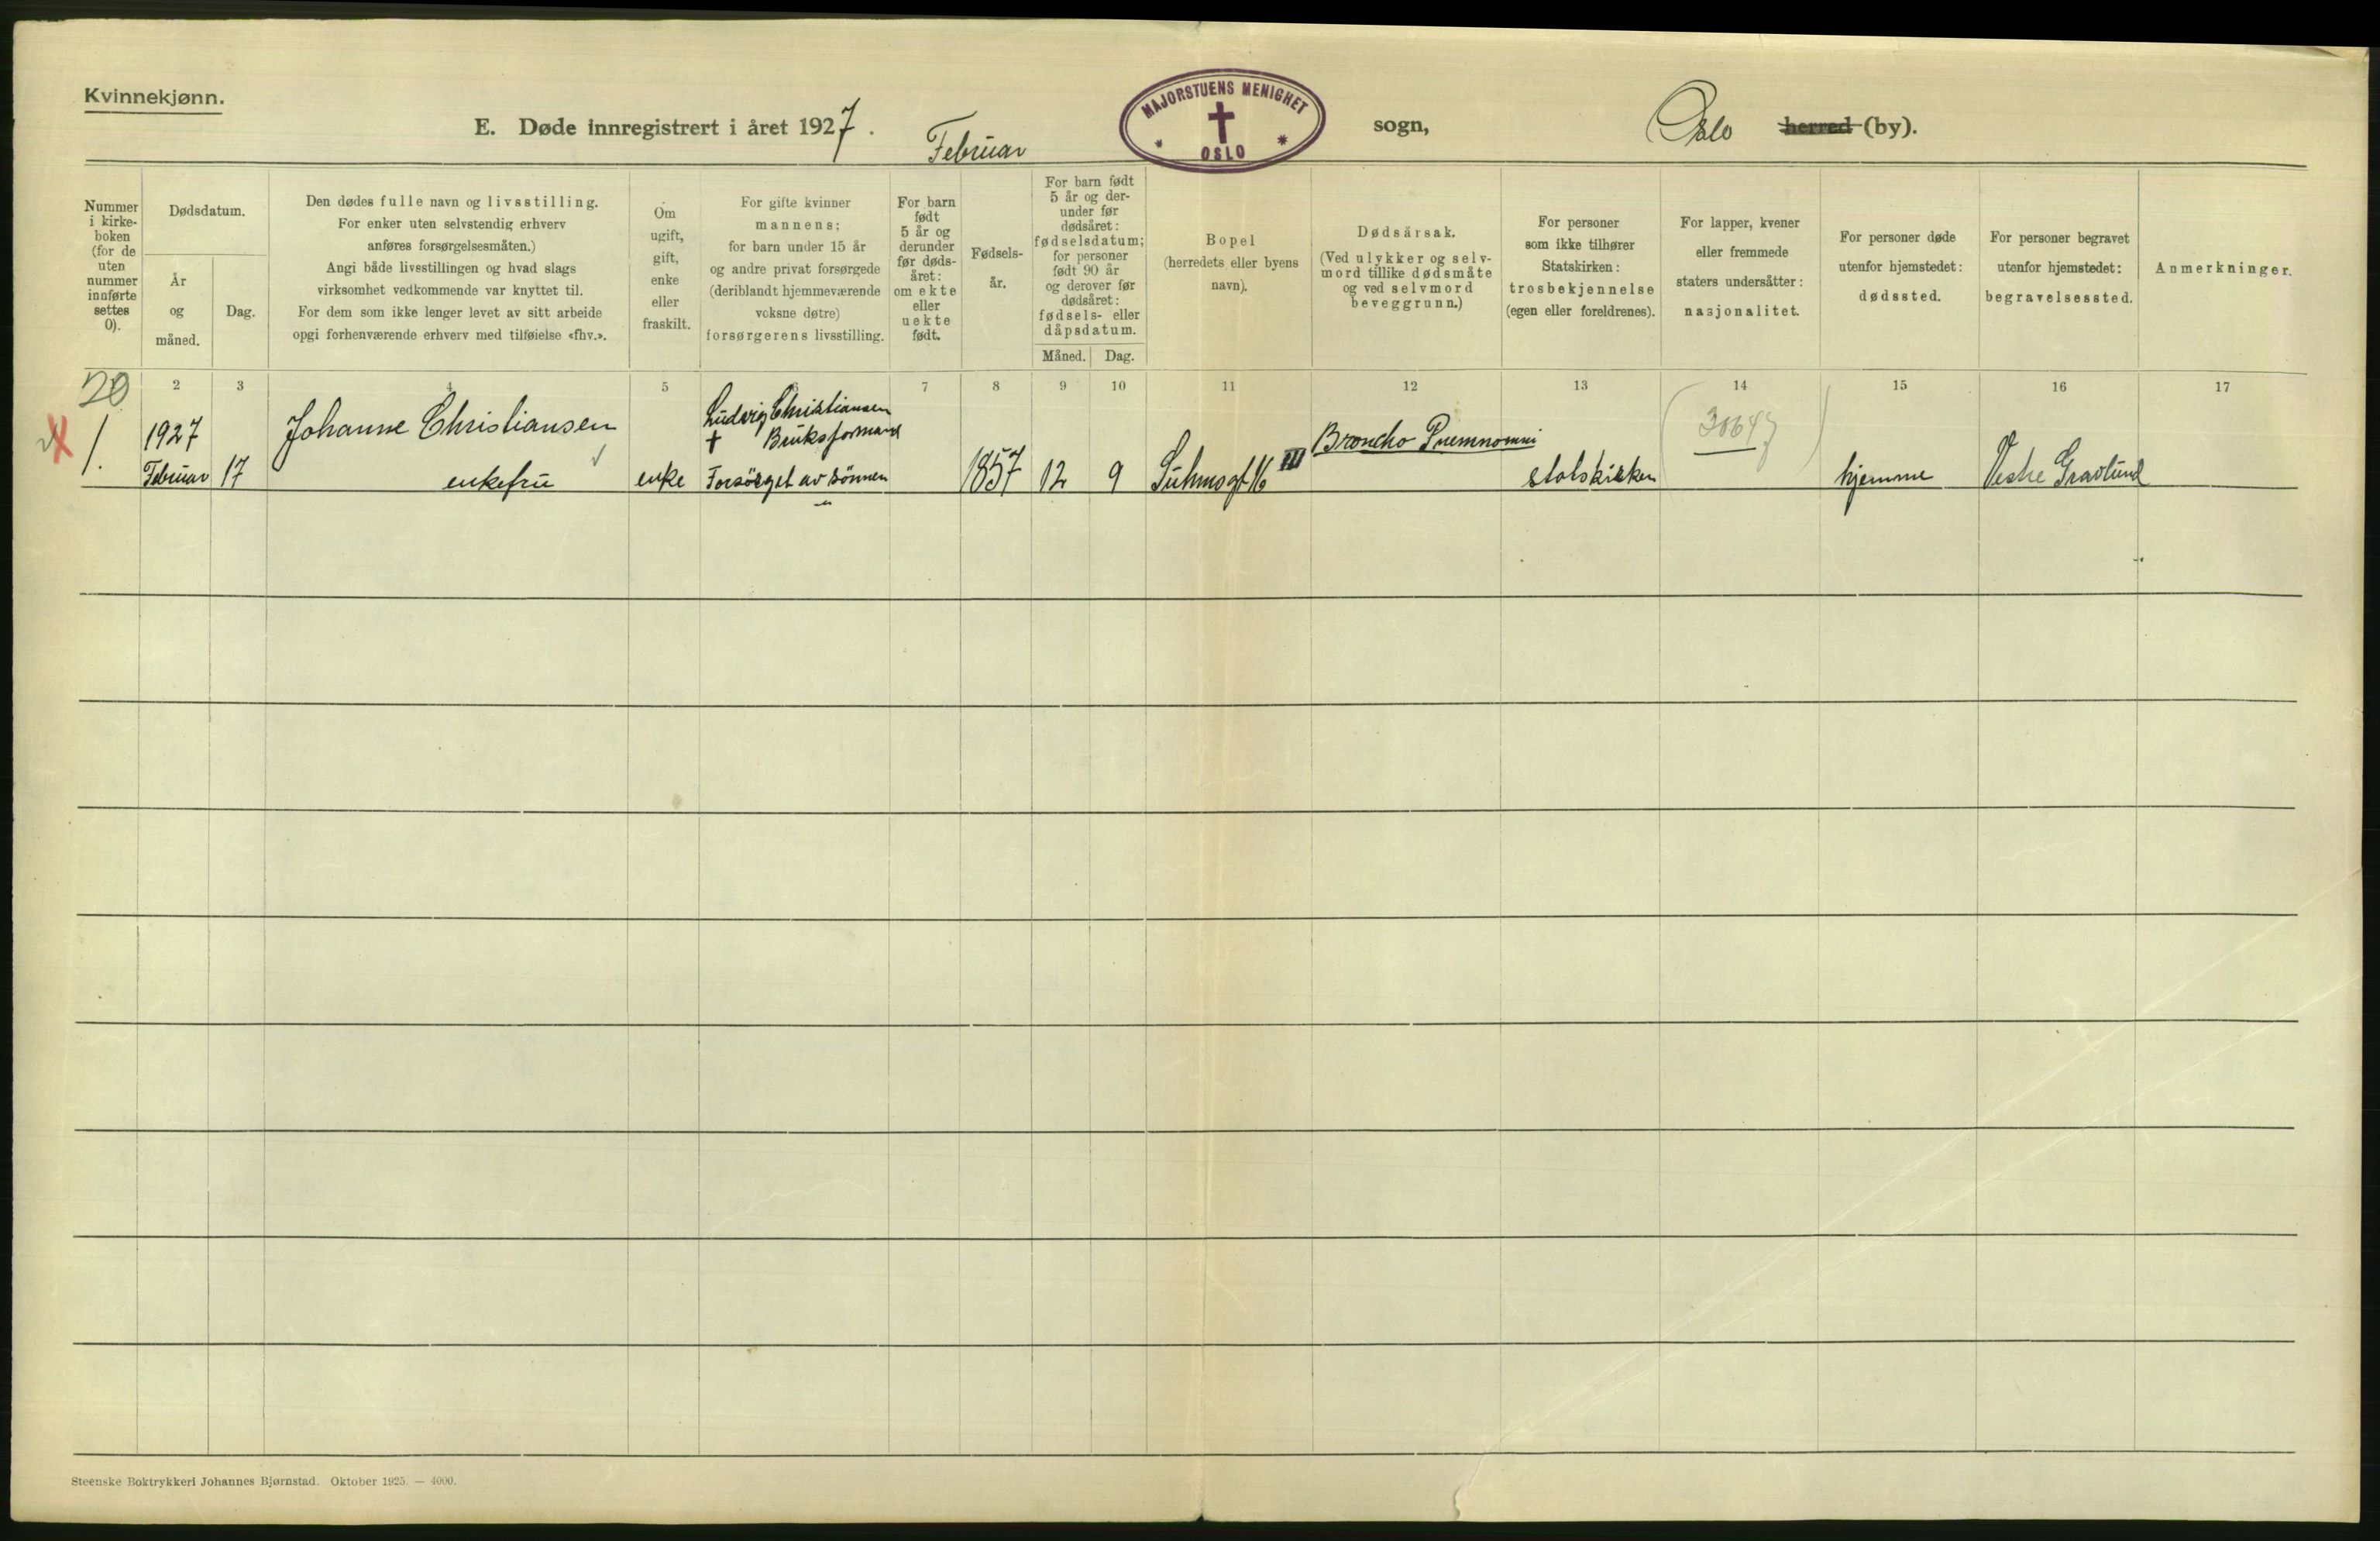 Kvinnekjønn.
E. Døde innregistrert i året 1927. Februar
MAJORSTUENS MENIGHET
* OSLO *
sogn, Oslo herred (by).
Nummer i kirke-boken (for de uten nummer innførte settes 0).
Dødsdatum.
År og måned.
Dag.
Den dødes fulle navn og livsstilling.
For enker uten selvstendig erhverv
anføres forsørgelsesmåten.)
Angi både livsstillingen og hvad slags
virksomhet vedkommende var knyttet til.
For dem som ikke lenger levet av sitt arbeide
opgi forhenværende erhverv med tilføielse «fhv.».
Om
ugift,
gift,
enke
eller
fraskilt.
For gifte kvinner
mannens;
for barn under 15 år
og andre privat forsørgede
(deriblandt hjemmeværende
voksne døtre)
forsørgerens livsstilling.
For barn
født
5 år og
derunder
før døds-
året:
om ekte
eller
uekte
født.
Fødsels-
år.
For barn født
5 år og der-
under før
dødsåret:
fødselsdatum;
for personer
født 90 år
og derover før
dødsåret:
fødsels- eller
dåpsdatum.
Måned. Dag.
Bopel
(herredets eller byens
navn).
Dødsårsak.
(Ved ulykker og selv-
mord tillike dødsmåte
og ved selvmord
beveggrunn.)
For personer
som ikke tilhører
Statskirken:
trosbekjennelse
(egen eller foreldrenes).
For lapper, kvener
eller fremmede
staters undersåtter:
nasjonalitet.
For personer døde
utenfor hjemstedet:
dødssted.
For personer begravet
utenfor hjemstedet:
begravelsessted.
Anmerkninger.
20 2 3 4 5 7 8 9 10 11 12 13 14 15 16 17
1. 1927 Februar 17
Johanne Christiansen
enkefru
enke
Ludvig Christiansen
† Bruksformand
Forsörget av sönnen
1857 12 9
Suhmsgt 16 III
Broncho Pnemnomni
statskirken
hjemme
Vestre Gravlund
Steenske Boktrykkeri Johannes Bjørnstad. Oktober 1925. — 4000.